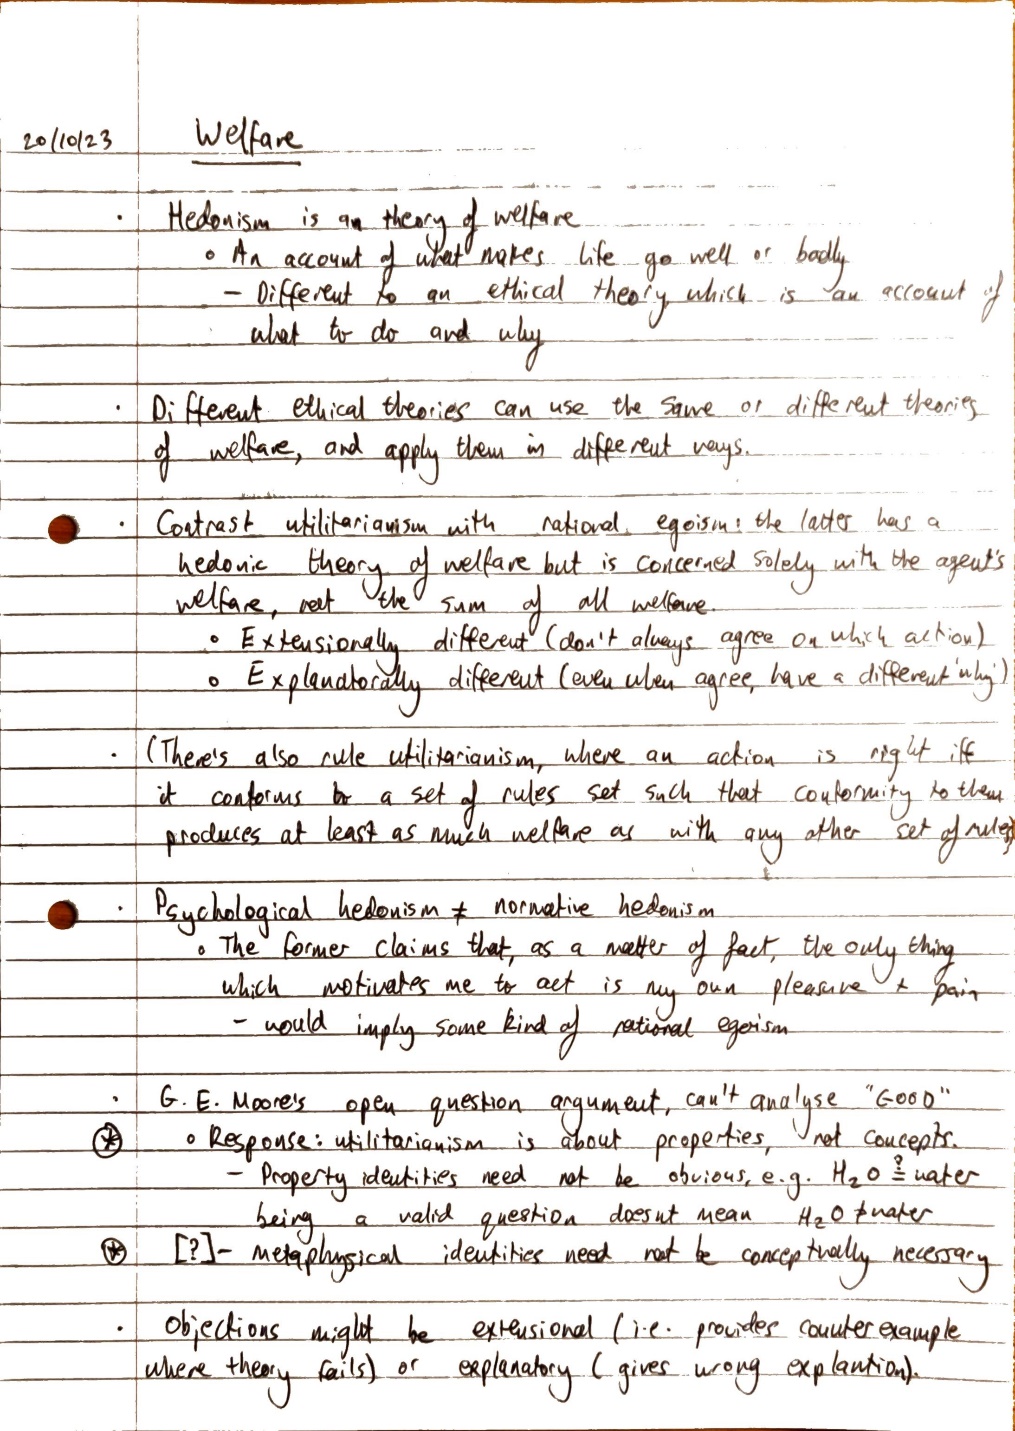 20/10/23 Welfare
· Hedonism is an theory of welfare
∘ An account of what makes life go well or badly
– Different to an ethical theory which is an account of
what to do and why
· Different ethical theories can use the same or different theories
of welfare, and apply them in different ways.
· Contrast utilitarianism with rational egoism: the latter has a
hedonic theory of welfare but is concerned solely with the agent's
welfare, not the sum of all welfare.
∘ Extensionally different (don't always agree on which action)
∘ Explanatorally different (even when agree, have a different 'why')
· (There's also rule utilitarianism, where an action is right iff
it conforms to a set of rules set such that conformity to them
produces at least as much welfare as with any other set of rules)
· Psychological hedonism ≠ normative hedonism
∘ The former claims that, as a matter of fact, the only thing
which motivates me to act is my own pleasure + pain
– would imply some kind of rational egoism
· G. E. Moore's open question argument, can't analyse "GOOD"
⊛ ∘ Response: utilitarianism is about properties, not concepts.
– Property identities need not be obvious, e.g. H₂O ≟ water
being a valid question doesnt mean H₂O ≠ water
⊛ [?] – metaphysical identities need not be conceptually necessary
· Objections might be extensional (i.e. provides counterexample
where theory fails) or explanatory (gives wrong explantion).